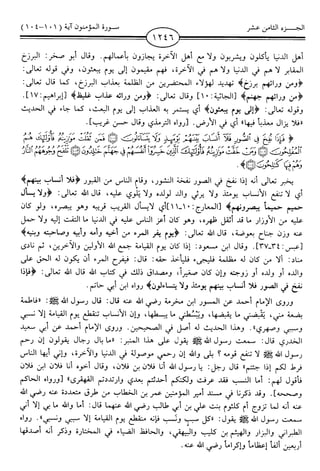 الجـزء الثامن عشر
١٢٤٦
سـورة المؤمنون آية (١٠١-١٠٤)
أهل الدنيا يأكلون ويشربون ولا مع أهل الآخرة يجازون بأعمالهم. وقال أبو صخر: البرزخ
المقابر لا هم في الدنيا ولا هم في الآخرة، فهم مقيمون إلى يوم يبعثون، وفي قوله تعالى:
﴿ومن ورائهم برزخ﴾ تهديد لهؤلاء المحتضرين من الظلمة بعذاب البرزخ، كما قال تعالى:
﴿من ورائهم جهنم﴾ [الجاثية: ١٠] وقال تعالى: ﴿ومن ورائه عذاب غليظ﴾ [إبراهيم: ١٧].
وقوله تعالى: ﴿إلى يوم يبعثون﴾ أي يستمر به العذاب إلى يوم البعث، كما جاء في الحديث
«فلا يزال معذباً فيها» أي في الأرض. [رواه الترمذي وقال حسن غريب].
﴿ فَإِذَا نُفِخَ فِي الصُّورِ فَلَا أَنسَابَ بَيْنَهُمْ يَوْمَئِذٍ وَلَا يَتَسَاءَلُونَ ۝ فَمَن ثَقُلَتْ مَوَازِينُهُ فَأُولَٰئِكَ هُمُ
الْمُفْلِحُونَ ۝ وَمَنْ خَفَّتْ مَوَازِينُهُ فَأُولَٰئِكَ الَّذِينَ خَسِرُوا أَنفُسَهُمْ فِي جَهَنَّمَ خَالِدُونَ ۝ تَلْفَحُ وُجُوهَهُمُ النَّارُ
وَهُمْ فِيهَا كَالِحُونَ ۝ ﴾
يخبر تعالى أنه إذا نفخ في الصور نفخة النشور، وقام الناس من القبور ﴿فلا أنساب بينهم﴾
أي لا تنفع الأنساب يومئذ ولا يرثي والد لولده ولا يلوي عليه، قال الله تعالى: ﴿ولا يسأل
حميم حميماً يبصرونهم﴾ [المعارج: ١٠-١١] أي لا يسأل القريب قريبه وهو يبصره، ولو كان
عليه من الأوزار ما قد أثقل ظهره، وهو كان أعز الناس عليه في الدنيا ما التفت إليه ولا حمل
عنه وزن جناح بعوضة، قال الله تعالى: ﴿يوم يفر المرء من أخيه وأمه وأبيه وصاحبته وبنيه﴾
[عبس: ٣٤-٣٧]. وقال ابن مسعود: إذا كان يوم القيامة جمع الله الأولين والآخرين، ثم نادى
مناد: ألا من كان له مظلمة فليجىء فليأخذ حقه: قال: فيفرح المرء أن يكون له الحق على
والده أو ولده أو زوجته وإن كان صغيراً، ومصداق ذلك في كتاب الله قال الله تعالى: ﴿فإذا
نفخ في الصور فلا أنساب بينهم يومئذ ولا يتساءلون﴾ رواه ابن أبي حاتم.
وروى الإمام أحمد عن المسور ابن مخرمة رضي الله عنه قال: قال رسول الله ﷺ: «فاطمة
بضعة مني، يَقْبضني ما يقبضها، ويَبْسُطني ما يبسطها، وإن الأنساب تنقطع يوم القيامة إلا نسبي
وسببي وصهري». وهذا الحديث له أصل في الصحيحين. وروى الإمام أحمد عن أبي سعيد
الخدري قال: سمعت رسول الله ﷺ يقول على هذا المنبر: «ما بال رجال يقولون إن رحم
رسول الله ﷺ لا تنفع قومه؟ بلى والله إن رحمي موصولة في الدنيا والآخرة، وإني أيها الناس
فرط لكم إذا جئتم» قال رجل: يا رسول الله أنا فلان بن فلان، وقال أخوه أنا فلان ابن فلان
فأقول لهم: أما النسب فقد عرفت ولكنكم أحدثتم بعدي وارتددتم القهقرى» [ورواه الحاكم
وصححه]. وقد ذكرنا في مسند أمير المؤمنين عمر بن الخطاب من طرق متعددة عنه رضي الله
عنه أنه لما تزوج أم كلثوم بنت علي بن أبي طالب رضي الله عنهما قال: أما والله ما بي إلا أني
سمعت رسول الله ﷺ يقول: «كل سبب ونَسب فإنه منقطع يوم القيامة إلا سببي ونسبي». رواه
الطبراني والبزار والهيثم بن كليب والبيهقي، والحافظ الضياء في المختارة وذكر أنه أصدقها
أربعين ألفاً إعظاماً وإكراماً رضي الله عنه.